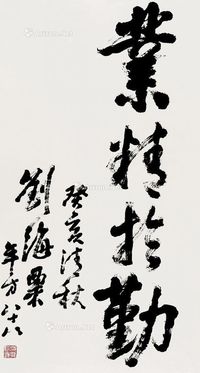 業精於勤
癸亥清秋
劉海粟
年方八十八